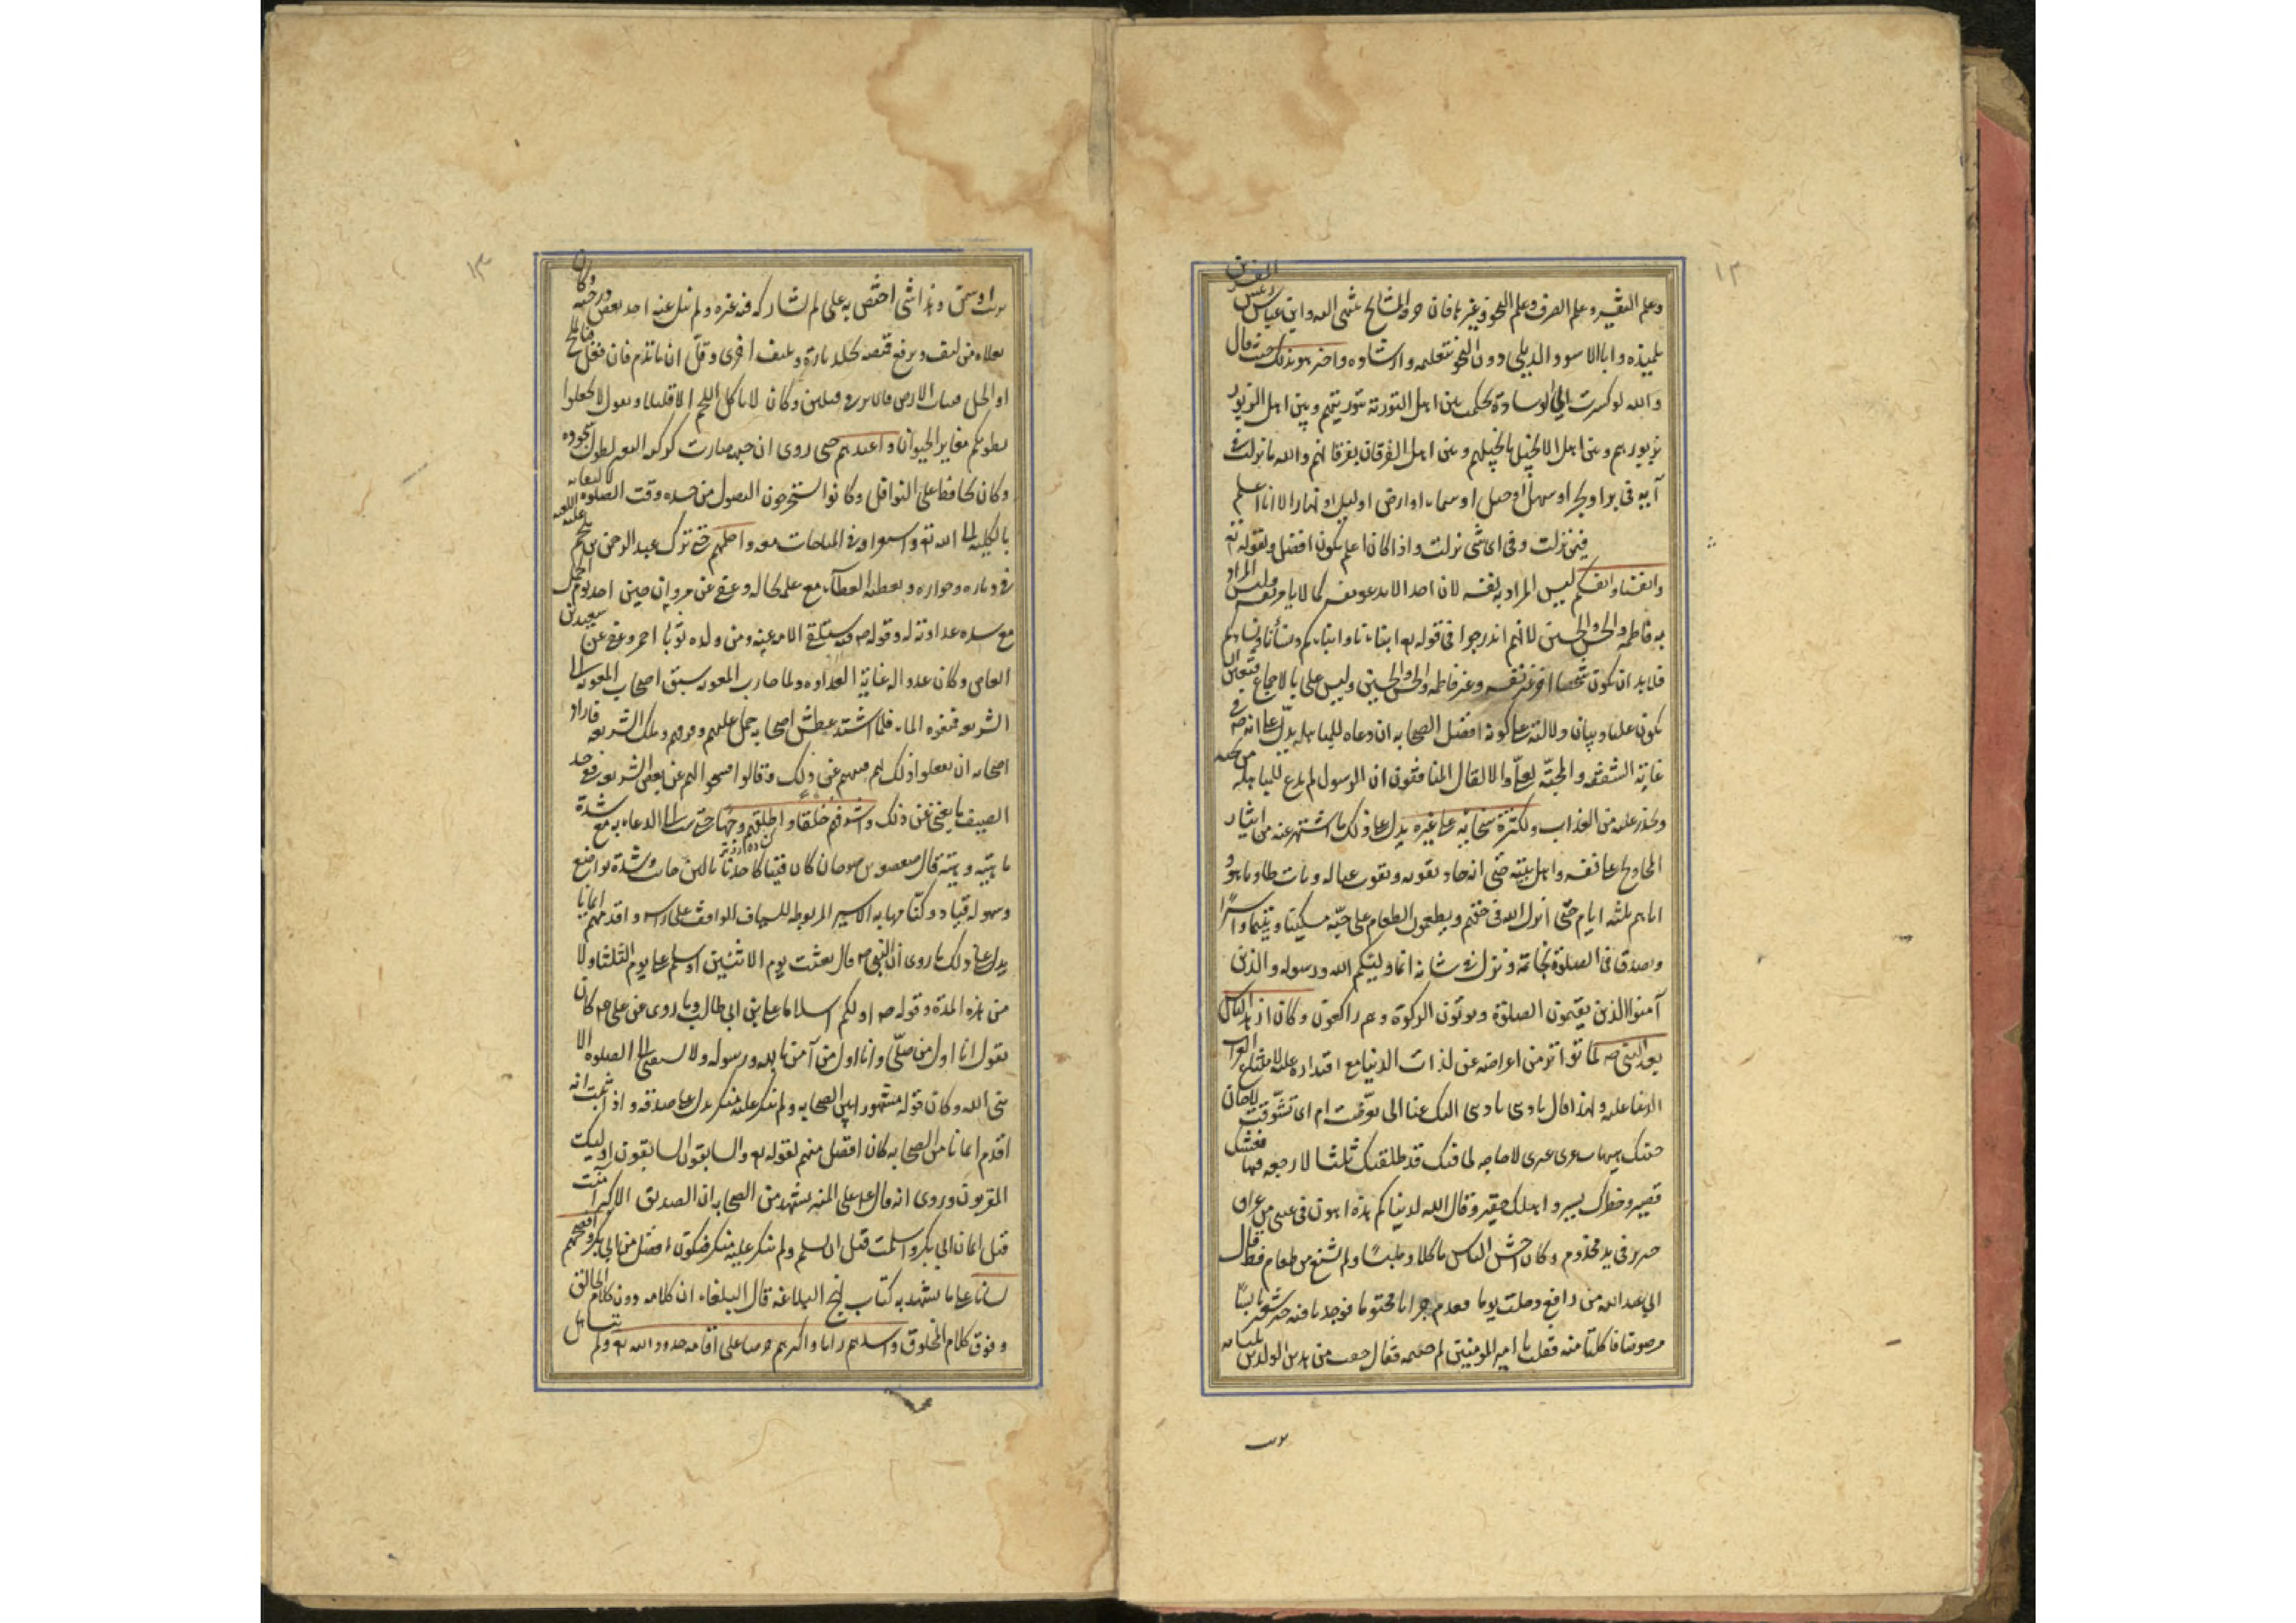 ١٢
وعلم التفسير وعلم الصرف وعلم النحو وغيرها فان المشايخ تنتمى اليه وابن عباس رئيس المفسرين
تلميذه وابا الاسود الديلى دون النحو بتعليمه وارشاده واخبر هو بذلك حيث قال
والله لو كسرت لى الوسادة لحكمت بين اهل التورية بتوريتهم وبين اهل الزبور
بزبورهم وبين اهل الانجيل بانجيلهم وبين اهل الفرقان بفرقانهم والله ما نزلت
آية فى بر او بحر او سهل او جبل او سماء او ارض او ليل او نهار الا انا اعلم
فيمن نزلت وفى اى شى نزلت واذا كان اعلم يكون افضل ولقوله تع
وانفسنا وانفسكم ليس المراد به نفسه لان احدا لا يدعو نفسه كما لا يامر نفسه وليس المراد
به فاطمة والحسن والحسين لانهم اندرجوا فى قوله تع ابناءنا وابناءكم ونساءنا ونساءكم
فلابد ان يكون شخصا اخر غير نفسه وغير فاطمة والحسن والحسين وليس غير على بالاجماع فتعين ان
يكون عليا وبيان دلالته على كونه افضل الصحابة ان دعاه للمباهلة يدل على انه فى
غاية الشفقة والمحبة لعلى والا لقال المنافقون ان الرسول لم يدع للمباهلة من يحبه
ويحذر عليه من العذاب ولكثرة سخائه على غيره يدل على ذلك ما اشتهر عنه من ايثار
المحاويج على نفسه واهل بيته حتى انه جاد بقوته وقوت عياله وبات طاويا هو و
اياهم ثلثة ايام حتى انزل الله فى حقهم ويطعمون الطعام على حبه مسكينا ويتيما واسيرا
وتصدق فى الصلوة بخاتمه ونزل فى شانه انما وليكم الله ورسوله والذين
آمنوا الذين يقيمون الصلوة ويؤتون الزكوة وهم راكعون وكان ازهد الناس
بعد النبى ص لما تواتر من اعراضه عن لذات الدنيا مع اقتداره عليها لاتساع ابواب
الدنيا عليه ولهذا قال يا دنيا يا دنيا اليك عنى الى تعرضت ام الى تشوقت لا حان
حينك هيهات غرى غيرى لا حاجة لى فيك قد طلقتك ثلثا لا رجعة فيها فعيشك
قصير وخطرك يسير واملك حقير وقال والله لدنياكم هذه اهون فى عينى من عراق
خنزير فى يد مجذوم وكان اخشن الناس ماكلا وملبسا ولم يشبع من طعام قط قال
ابى عبد الله بن رافع دخلت يوما فقدم جرابا مختوما فوجدنا فيه خبز شعير يابسا
مرضوضا فاكلنا منه فقلت يا امير المؤمنين لم ختمته فقال خفت من هذين الولدين
١٣
بزيت او سمن وهذا شى اختص به على لم يشاركه فيه غيره ولم ينل عنه احد بعض درجته وكان
نعلاه من ليف ويرقع قميصه بجلد تارة وبليف اخرى وقل ان يأتدم فان فعل فبالملح
او الخل فبنبات الارض وكان لا ياكل اللحم الا قليلا ويقول لا تجعلوا
بطونكم مقابر الحيوان واعبدهم حتى روى ان جبهته صارت كركبة البعير لطول سجوده
وكان يحافظ على النوافل وكانوا يستخرجون النصول من جسده وقت الصلوة لالتفاته
بالكلية الى الله تع واحلمهم حتى ترك عبد الرحمن بن ملجم عليه اللعنة
فى دياره وجواره ويعطيه العطاء مع علمه بحاله وعفى عن مروان حين اخذ يوم الجمل
مع شدة عداوته له وقوله ص فيه ستلقى الامة منه ومن ولده يوما احمر وعفى عن سعيد بن
العاص وكان عدوا له غاية العداوة ولما حارب المعوية سبق اصحاب المعوية الى
الشريعة فمنعوه الماء فلما اشتد عطش اصحابه حمل عليهم وفرقهم وملك الشريعة فاراد
اصحابه ان يفعلوا ذلك بهم فمنعهم عن ذلك وقالوا افسحوا لهم عن بعض الشريعة فى حد
السيف ما يغنى عن ذلك واشرفهم خلقا واطلقهم وجها حتى نسب الى الدعابة مع شدة
باسه وهيبته قال صعصعة بن صوحان كان فينا كاحدنا لين جانب وشدة تواضع
وسهولة قياد وكنا نهابه مهابة الاسير المربوط للسياف الواقف على راسه واقدمهم ايمانا
يدل على ذلك ما روى ان النبى ص قال بعثت يوم الاثنين واسلم على يوم الثلثا ولا
من هذه المدة وقوله ص اولكم اسلاما على بن ابى طالب وما روى عن على ع كان
يقول انا اول من صلى وانا اول من آمن بالله ورسوله ولا سبقنى الى الصلوة الا
نبى الله وكان قوله مشهورا بين الصحابة ولم ينكر عليه منكر يدل على صدقه واذا ثبت انه
اقدم ايمانا من الصحابة كان افضل منهم لقوله تع والسابقون السابقون اولئك
المقربون وروى انه قال على المنبر بمشهد من الصحابة انا الصديق الاكبر آمنت
قبل ايمان ابى بكر واسلمت قبل ان اسلم ولم ينكر عليه منكر فيكون افضل من ابى بكر وافصحهم
لسانا على ما يشهد به كتاب نهج البلاغة قال البلغاء ان كلامه دون كلام الخالق
وفوق كلام المخلوق واسدهم رايا واكثرهم حرصا على اقامة حدود الله تع ولم يتساهل